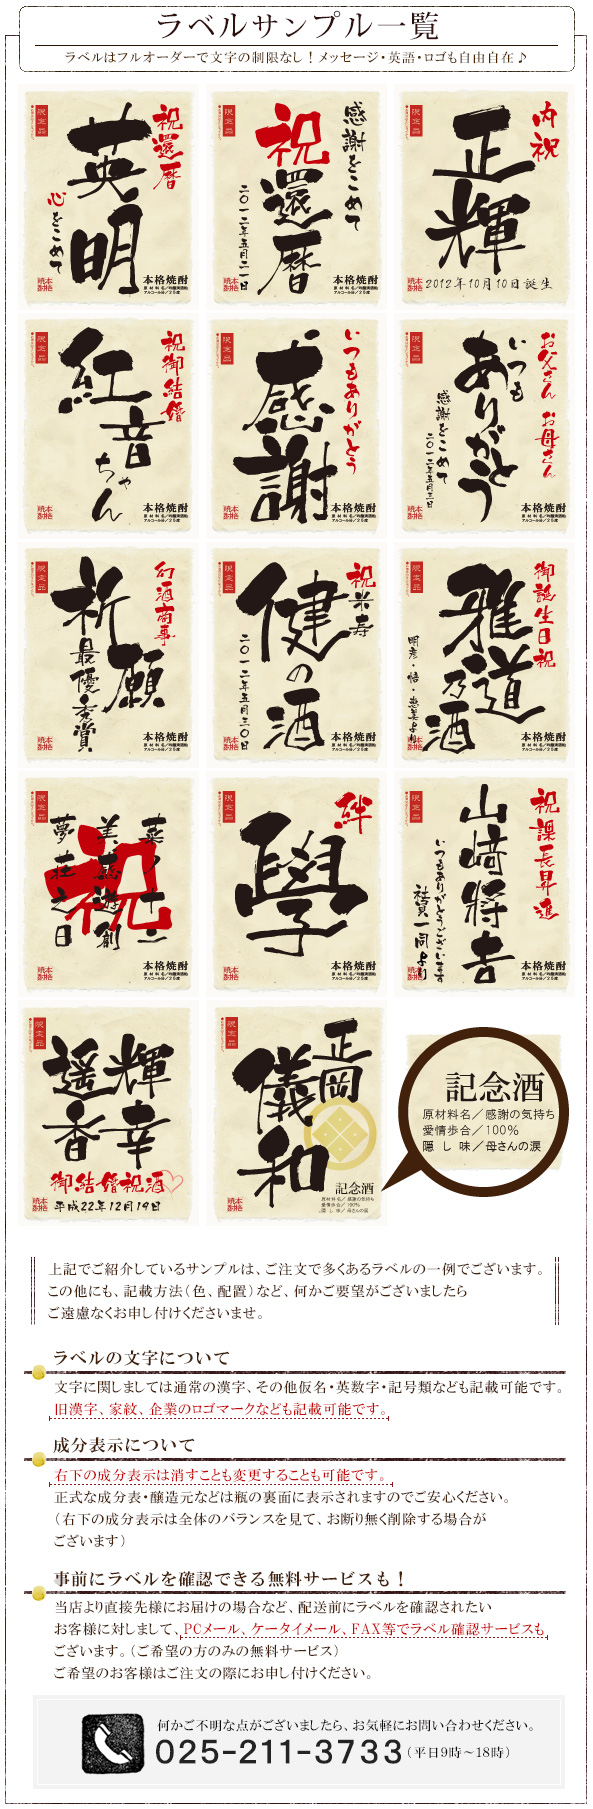 ラベルサンプル一覧
ラベルはフルオーダーで文字の制限なし！メッセージ・英語・ロゴも自由自在♪
限定品
祝還暦
英明
心をこめて
本格焼酎
本格焼酎
限定品
感謝をこめて
祝
還暦
二〇一二年五月二一日
本格焼酎
本格焼酎
限定品
内祝
正輝
2012年10月10日誕生
本格焼酎
限定品
祝御結婚
紅音ちゃん
本格焼酎
本格焼酎
限定品
いつもありがとう
感謝
本格焼酎
本格焼酎
限定品
お父さん お母さん
いつも
ありがとう
感謝をこめて
二〇一二年五月三日
本格焼酎
本格焼酎
限定品
幻酒商事
祈願
最優秀賞
本格焼酎
本格焼酎
限定品
祝米寿
健の酒
二〇一二年五月三〇日
本格焼酎
限定品
御誕生日祝
雅道乃酒
本格焼酎
本格焼酎
限定品
祝
夢荘之日
本格焼酎
本格焼酎
限定品
絆
學
本格焼酎
本格焼酎
限定品
祝課長昇進
山崎將吉
いつもありがとうございます
社員一同より
本格焼酎
本格焼酎
限定品
輝幸
遥香
御結婚祝酒
平成22年12月19日
限定品
正岡
儀和
記念酒
原材料名／感謝の気持ち
愛情歩合／100％
隠し味／母さんの涙
本格焼酎
記念酒
原材料名／感謝の気持ち
愛情歩合／100％
隠し味／母さんの涙
上記でご紹介しているサンプルは、ご注文で多くあるラベルの一例でございます。
この他にも、記載方法（色、配置）など、何かご要望がございましたら
ご遠慮なくお申し付けくださいませ。
ラベルの文字について
文字に関しましては通常の漢字、その他仮名・英数字・記号類なども記載可能です。
旧漢字、家紋、企業のロゴマークなども記載可能です。
成分表示について
右下の成分表示は消すことも変更することも可能です。
正式な成分表・醸造元などは瓶の裏面に表示されますのでご安心ください。
（右下の成分表示は全体のバランスを見て、お断り無く削除する場合が
ございます）
事前にラベルを確認できる無料サービスも！
当店より直接先様にお届けの場合など、配送前にラベルを確認されたい
お客様に対しまして、PCメール、ケータイメール、FAX等でラベル確認サービスも
ございます。（ご希望の方のみの無料サービス）
ご希望のお客様はご注文の際にお申し付けください。
何かご不明な点がございましたら、お気軽にお問い合わせください。
025-211-3733（平日9時～18時）